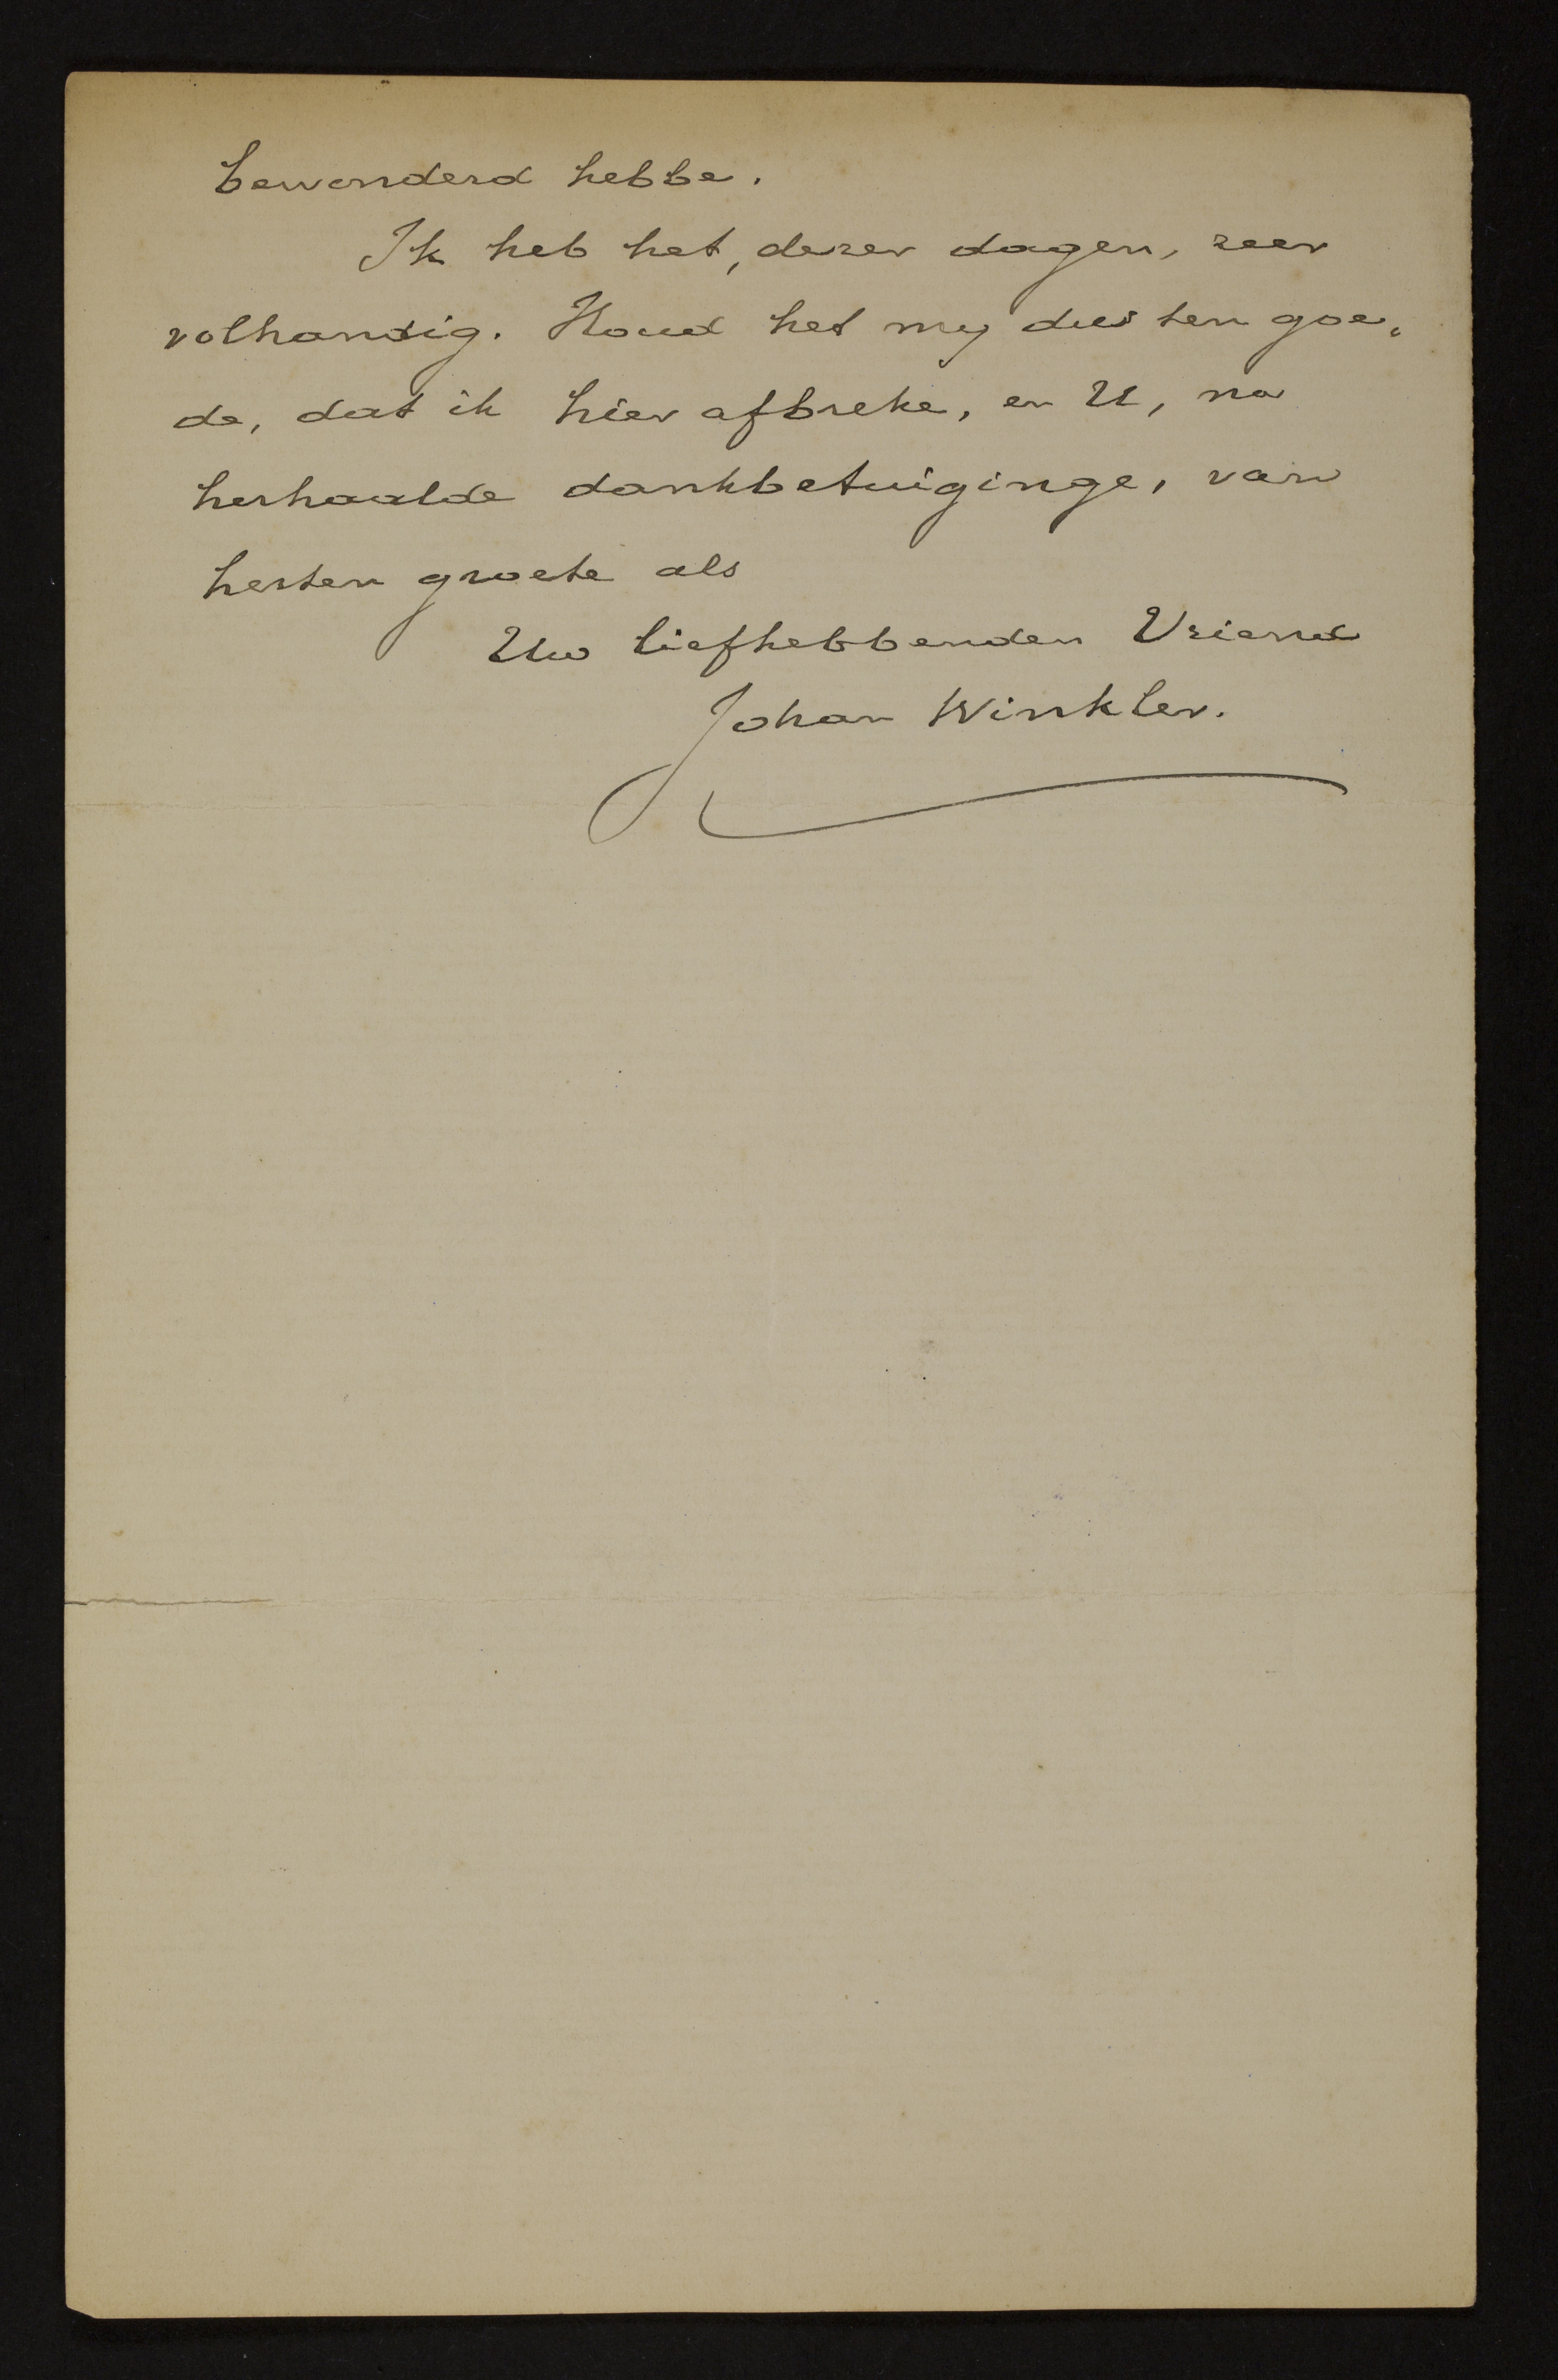 bewonderd hebbe.
Ik heb het, dezer dagen, zeer
volhandig. Houd het my dus ten goe-
de, dat ik hier afbreke, en U, na
herhaalde dankbetuiginge, van
herten groete als
Uw liefhebbenden Vriend
Johan Winkler.